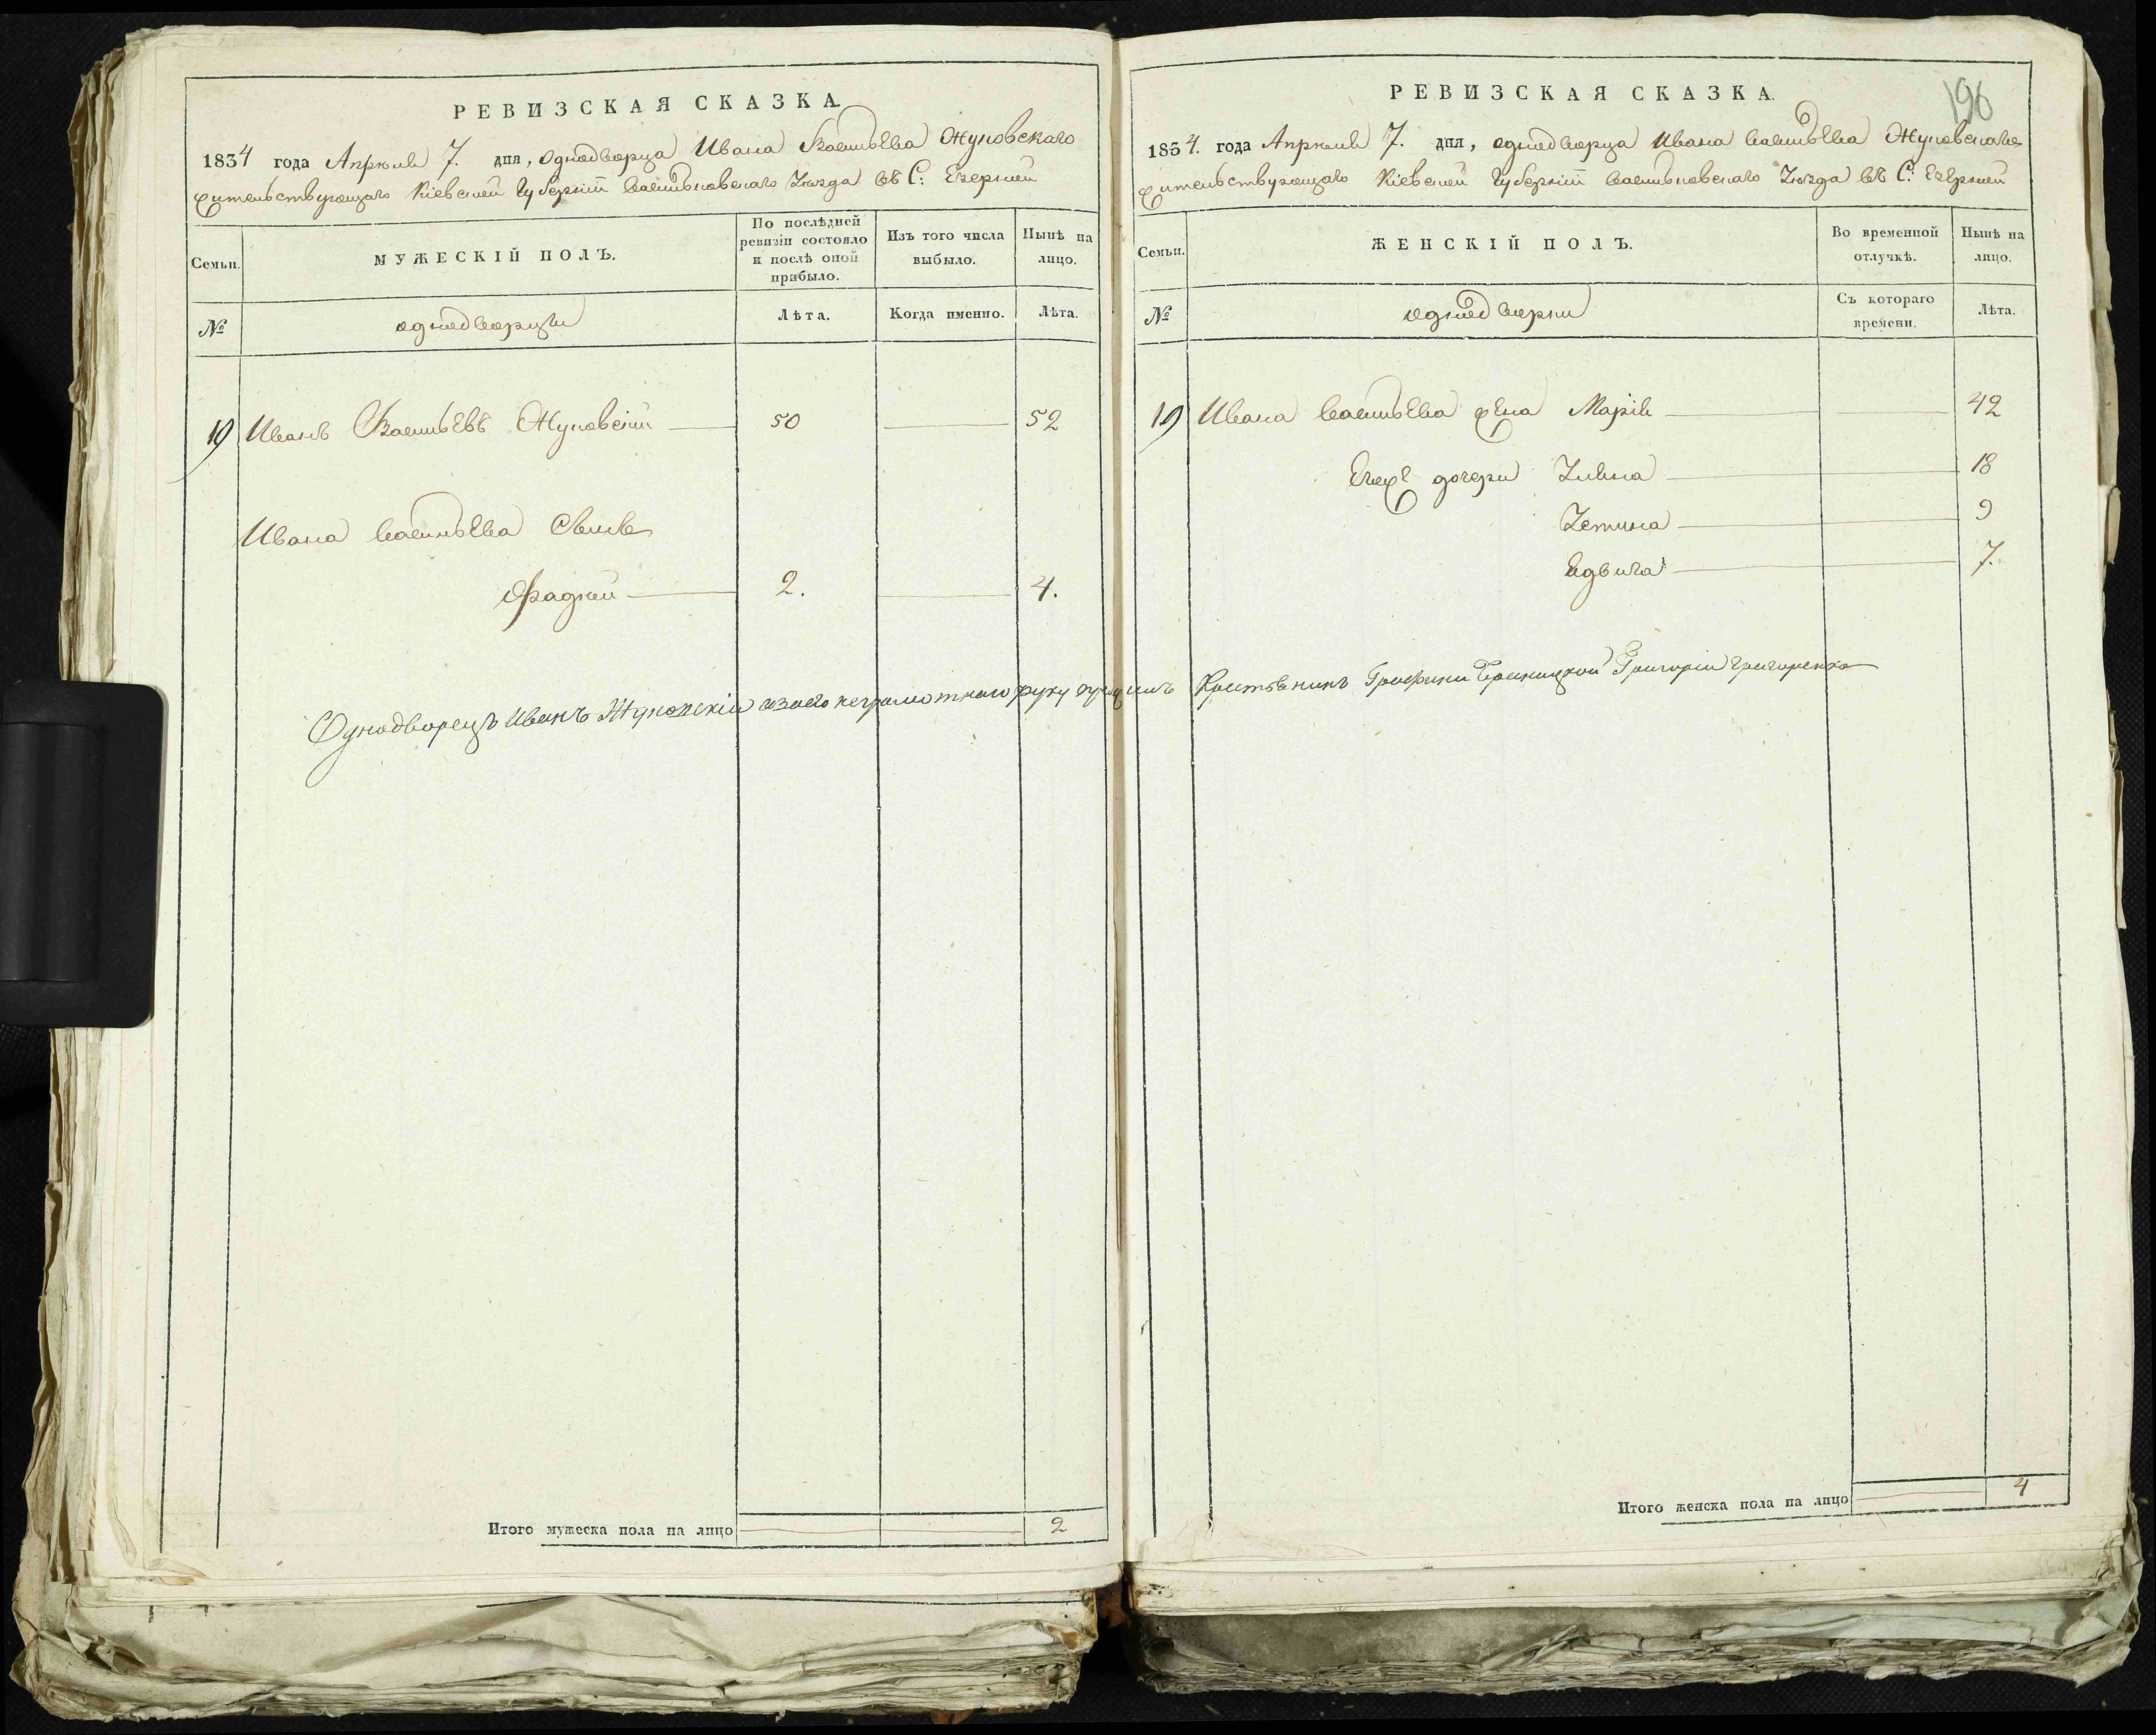 РЕВИЗСКАЯ СКАЗКА.
1834 года Апрѣля 7. дня, однодворца Ивана Васильева Жуковскаго
жительствующаго Кіевской Губерніи Васильковскаго Уѣзда въ С: Езерной
Семьи.
МУЖЕСКІЙ ПОЛЪ.
По послѣдней ревизіи состояло и послѣ оной прибыло.
Изъ того числа выбыло.
Нынѣ на лицо.
№
однодворцы
Лѣта.
Когда именно.
Лѣта.
19 Иванъ Васильевъ Жуковскій 50 52
Ивана Васильева Сынъ
Фадей 2. 4.
Однодворецъ Иванъ Жуковскій а за его неграмотнаго руку
Итого мужеска пола на лицо 2
196
РЕВИЗСКАЯ СКАЗКА.
1834. года Апрѣля 7. дня, однодворца Ивана Васильева Жуковскаго
жительствующаго Кіевской Губерніи Васильковскаго Уѣзда въ С: Езерной
Семьи.
ЖЕНСКІЙ ПОЛЪ.
Во временной отлучкѣ.
Нынѣ на лицо.
№
однодворки
Съ котораго времени.
Лѣта.
19 Ивана Васильева жена Марія 42
Ихъ дочери 18
9
7.
Крестьянинъ Графини Браницкой Григорій Григоренко
Итого женска пола на лицо 4